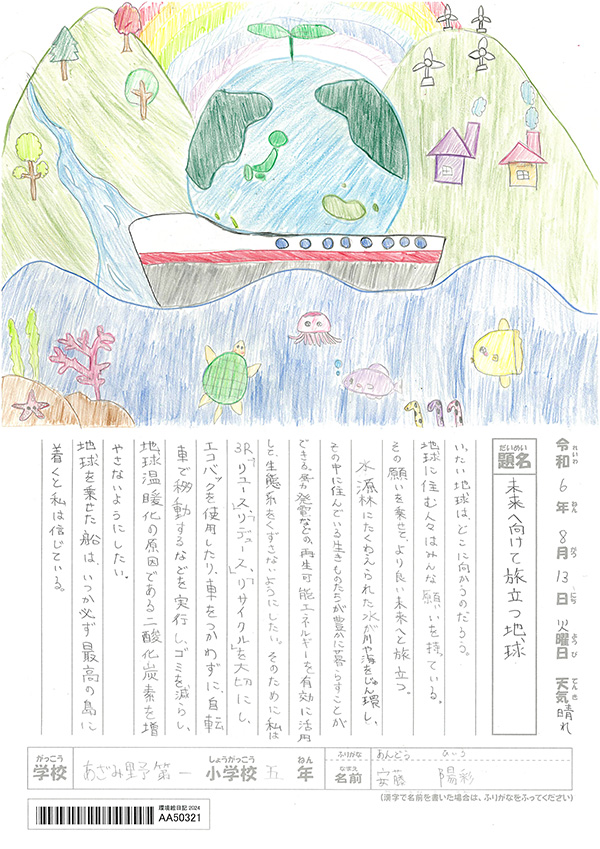 令和6年8月13日火曜日 天気 晴れ
れいわ ねん がつ にち ようび てんき
だいめい
題名 未来へ向けて旅立つ地球
いったい地球は、どこに向かうのだろう。
地球に住む人々はみんな願いを持っている。
その願いを乗せて、より良い未来へと旅立つ。
水源林にたくわえられた水が川や海をじゅん環し、
その中に住んでいる生きものたちが豊かに暮らすことが
できる、風力発電などの、再生可能エネルギーを有効に活用
して、生態系をくずさないようにしたい。そのために私は
3R、「リユース」「リデュース」「リサイクル」を大切にし、
エコバッグを使用したり、車をつかわずに、自転
車で移動するなどを実行し、ゴミを減らし、
地球温暖化の原因である二酸化炭素を増
やさないようにしたい。
地球を乗せた船は、いつか必ず最高の島に
着くと私は信じている。
がっこう しょうがっこう ねん
学校 あざみ野第一 小学校 五 年
ふりがな あんどう ひいろ
なまえ
名前 安藤 陽彩
(漢字で名前を書いた場合は、ふりがなをふってください)
環境絵日記2024
AA50321